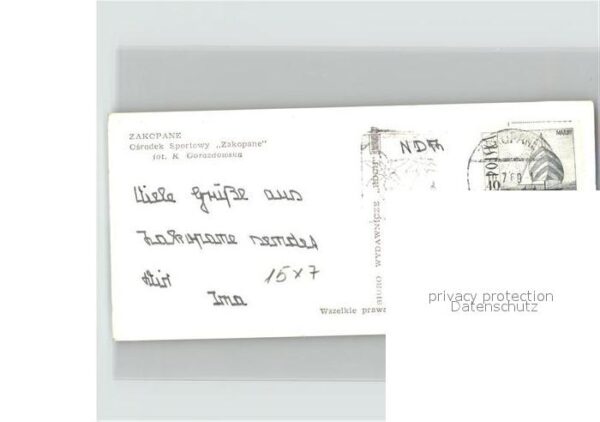 ZAKOPANE
Ośrodek Sportowy „Zakopane"
fot. K. Gorazdowska
NDR
Viele Grüße aus
Zakopane sendet
Dir 15x7
Ima
BIURO WYDAWNICZE „RUCH"
Wszelkie prawa
POLSKA
privacy protection
Datenschutz